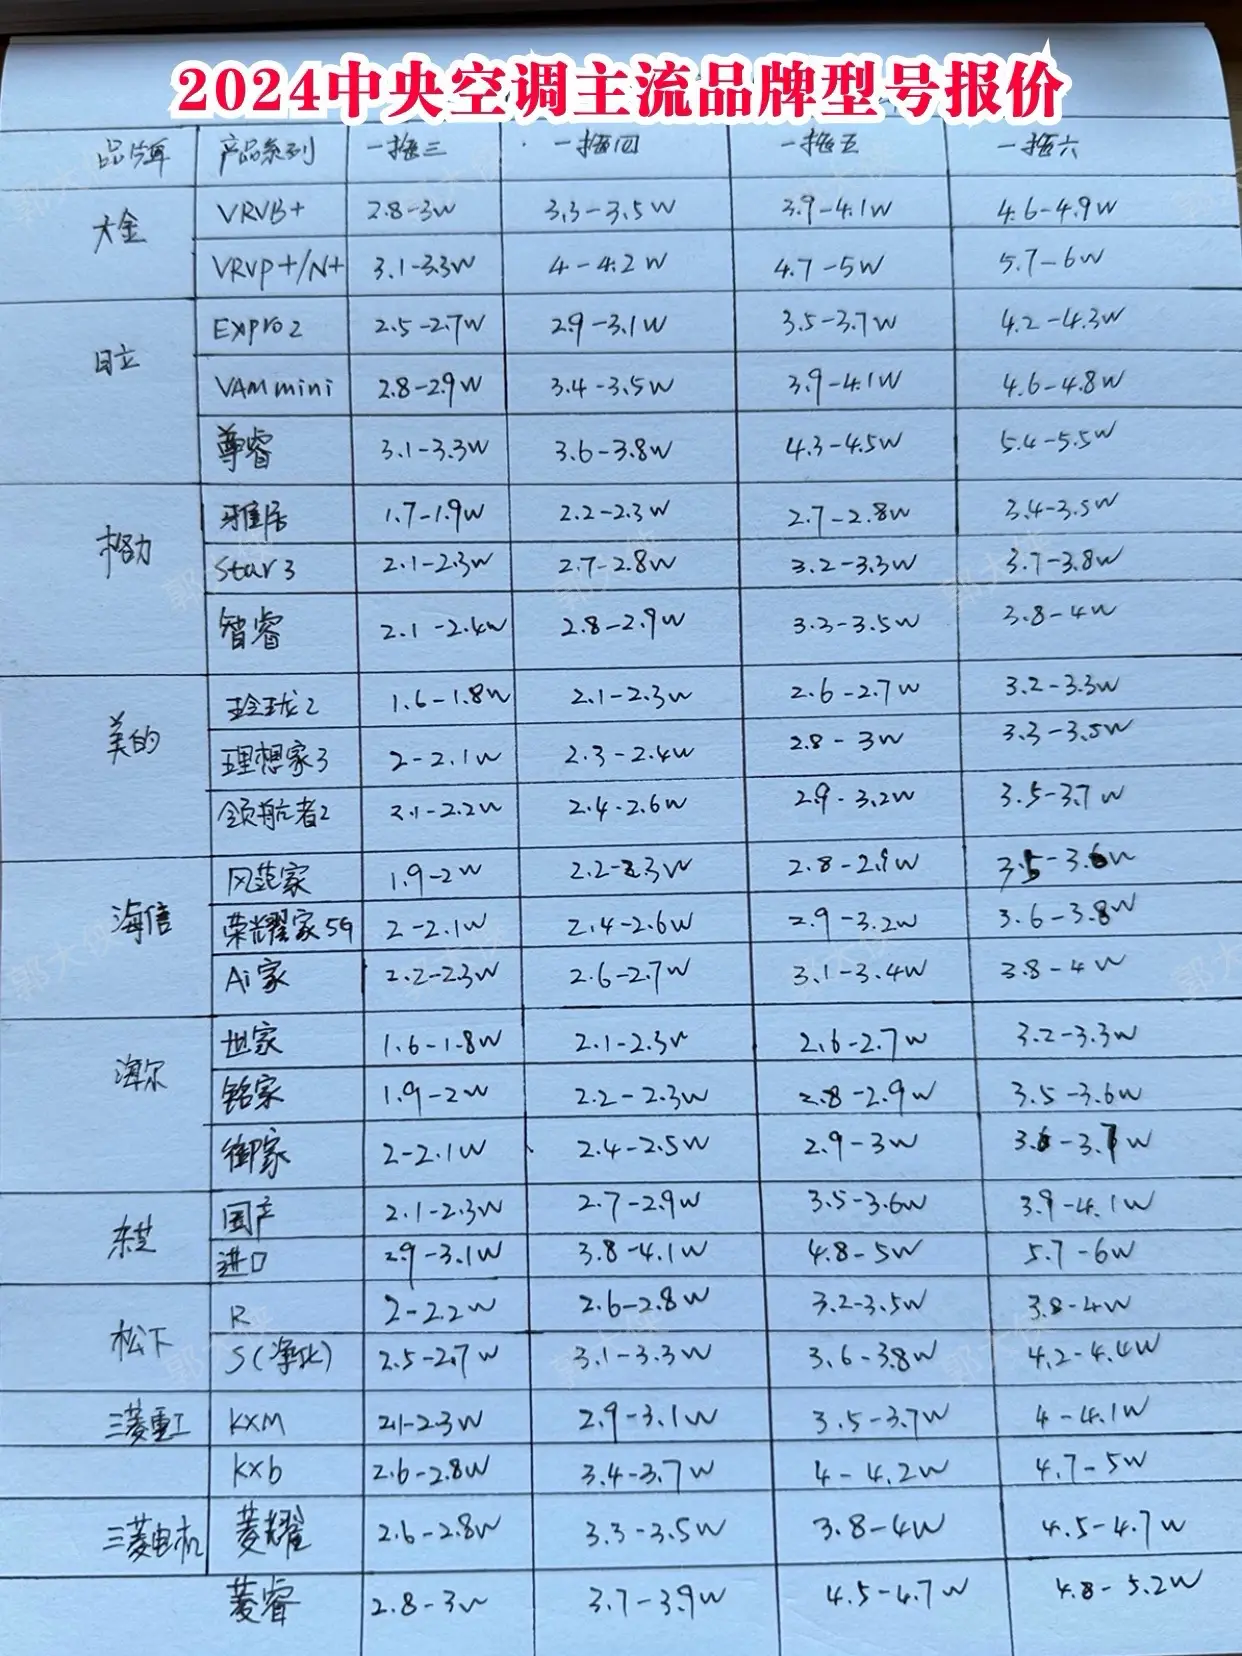 2024中央空调主流品牌型号报价
品牌 产品系列 一拖三 一拖四 一拖五 一拖六
大金 VRVB+ 2.8-3W 3.3-3.5W 3.9-4.1W 4.6-4.9W
VRVP+/N+ 3.1-3.3W 4-4.2W 4.7-5W 5.7-6W
日立 EXpro2 2.5-2.7W 2.9-3.1W 3.5-3.7W 4.2-4.3W
VAM mini 2.8-2.9W 3.4-3.5W 3.9-4.1W 4.6-4.8W
尊睿 3.1-3.3W 3.6-3.8W 4.3-4.5W 5.4-5.5W
格力 雅居 1.7-1.9W 2.2-2.3W 2.7-2.8W 3.4-3.5W
Star3 2.1-2.3W 2.7-2.8W 3.2-3.3W 3.7-3.8W
智睿 2.1-2.4W 2.8-2.9W 3.3-3.5W 3.8-4W
美的 玲珑2 1.6-1.8W 2.1-2.3W 2.6-2.7W 3.2-3.3W
理想家3 2-2.1W 2.3-2.4W 2.8-3W 3.3-3.5W
领航者2 2.1-2.2W 2.4-2.6W 2.9-3.2W 3.5-3.7W
海信 风范家 1.9-2W 2.2-2.3W 2.8-2.9W 3.5-3.6W
荣耀家5G 2-2.1W 2.4-2.6W 2.9-3.2W 3.6-3.8W
Ai家 2.2-2.3W 2.6-2.7W 3.1-3.4W 3.8-4W
海尔 世家 1.6-1.8W 2.1-2.3W 2.6-2.7W 3.2-3.3W
铭家 1.9-2W 2.2-2.3W 2.8-2.9W 3.5-3.6W
御家 2-2.1W 2.4-2.5W 2.9-3W 3.6-3.7W
东芝 国产 2.1-2.3W 2.7-2.9W 3.5-3.6W 3.9-4.1W
进口 2.9-3.1W 3.8-4.1W 4.8-5W 5.7-6W
松下 R 2-2.2W 2.6-2.8W 3.2-3.5W 3.8-4W
S(净化) 2.5-2.7W 3.1-3.3W 3.6-3.8W 4.2-4.4W
三菱重工 KXM 2.1-2.3W 2.9-3.1W 3.5-3.7W 4-4.1W
KX6 2.6-2.8W 3.4-3.7W 4-4.2W 4.7-5W
三菱电机 菱耀 2.6-2.8W 3.3-3.5W 3.8-4W 4.5-4.7W
菱睿 2.8-3W 3.7-3.9W 4.5-4.7W 4.8-5.2W